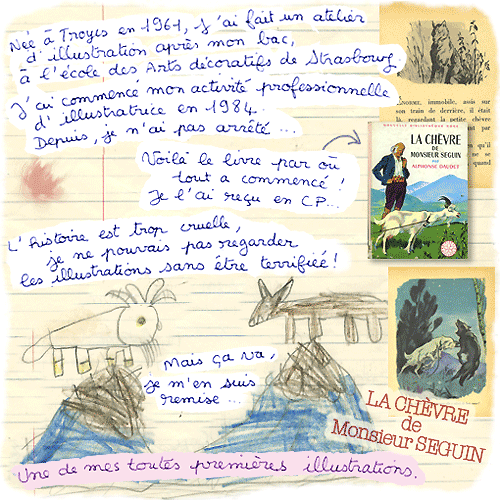 Née à Troyes en 1961, j'ai fait un atelier
d'illustration après mon bac,
à l'école des Arts décoratifs de Strasbourg.
J'ai commencé mon activité professionnelle
d'illustratrice en 1984.
Depuis, je n'ai pas arrêté ...
Voilà le livre par où
tout a commencé !
Je l'ai reçu en CP...
L'histoire est trop cruelle,
je ne pouvais pas regarder
les illustrations sans être terrifiée !
Mais ça va,
je m'en suis
remise ...
Une de mes toutes premières illustrations.
ENORME, immobile, assis sur
son train de derrière, il était
là, regardant la petite chèvre
LA CHÈVRE
DE
MONSIEUR SEGUIN
PAR
ALPHONSE DAUDET
LA CHÈVRE
de
Monsieur SEGUIN